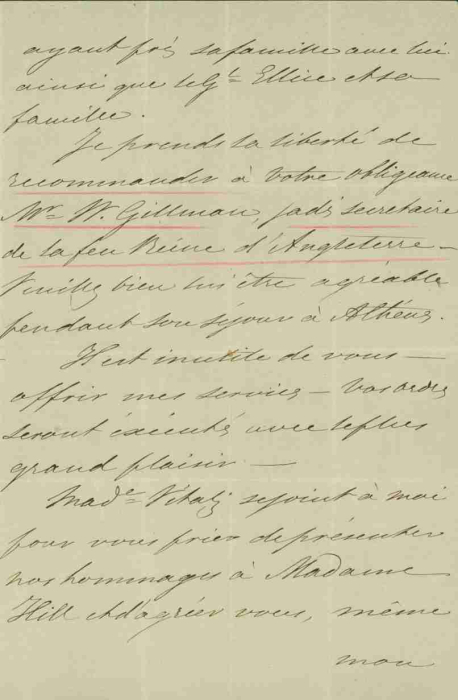 ayant pris sa famille avec lui
ainsi que le Gl Ellice et sa
famille.
Je prends la liberté de
recommander à Votre obligeance
Mr W. Gillman, jadis secretaire
de la feu Reine d'Angleterre —
Veuillez bien lui être agréable
pendant son séjour à Athénes.
Il est inutile de vous —
offrir mes services — Vos ordres
seront éxécutés avec le plus
grand plaisir —
Made Vitalis se joint à moi
pour vous prier de présenter
nos hommages à Madame
Hill et d'agréer vous, même
mon